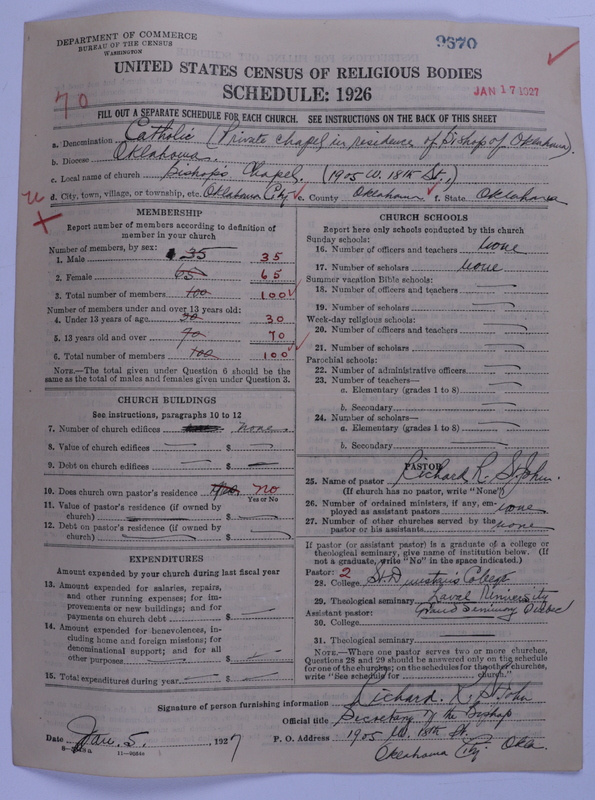 DEPARTMENT OF COMMERCE
BUREAU OF THE CENSUS
WASHINGTON
9370
UNITED STATES CENSUS OF RELIGIOUS BODIES
SCHEDULE: 1926
JAN 17 1927
70
FILL OUT A SEPARATE SCHEDULE FOR EACH CHURCH. SEE INSTRUCTIONS ON THE BACK OF THIS SHEET
a. Denomination Catholic (Private chapel in residence of Bishop of Oklahoma).
b. Diocese Oklahoma.
c. Local name of church Bishop's Chapel. (1905 W. 18th St.)
d. City, town, village, or township, etc. Oklahoma City e. County Oklahoma f. State Oklahoma
MEMBERSHIP
Report number of members according to definition of
member in your church
Number of members, by sex:
1. Male 35 35
2. Female 65 65
3. Total number of members 100 100
Number of members under and over 13 years old:
4. Under 13 years of age 30 30
5. 13 years old and over 70 70
6. Total number of members 100 100
NOTE.—The total given under Question 6 should be the
same as the total of males and females given under Question 3.
CHURCH BUILDINGS
See instructions, paragraphs 10 to 12
7. Number of church edifices none
8. Value of church edifices $
9. Debt on church edifices $
10. Does church own pastor's residence No
Yes or No
11. Value of pastor's residence (if owned by
church) $
12. Debt on pastor's residence (if owned by
church) $
EXPENDITURES
Amount expended by your church during last fiscal year
13. Amount expended for salaries, repairs,
and other running expenses; for im-
provements or new buildings; and for
payments on church debt $
14. Amount expended for benevolences, in-
cluding home and foreign missions; for
denominational support; and for all
other purposes $
15. Total expenditures during year $
CHURCH SCHOOLS
Report here only schools conducted by this church
Sunday schools:
16. Number of officers and teachers None
17. Number of scholars None
Summer vacation Bible schools:
18. Number of officers and teachers
19. Number of scholars
Week-day religious schools:
20. Number of officers and teachers
21. Number of scholars
Parochial schools:
22. Number of administrative officers
23. Number of teachers—
a. Elementary (grades 1 to 8)
b. Secondary
24. Number of scholars—
a. Elementary (grades 1 to 8)
b. Secondary
PASTOR
25. Name of pastor Richard R. St. John.
(If church has no pastor, write "None")
26. Number of ordained ministers, if any, em-
ployed as assistant pastors none
27. Number of other churches served by the
pastor or his assistants none
If pastor (or assistant pastor) is a graduate of a college or
theological seminary, give name of institution below. (If
not a graduate, write "No" in the space indicated.)
Pastor: 2
28. College St. Dunstan's College
29. Theological seminary Laval University
Assistant pastor: Grand Seminary Quebec
30. College
31. Theological seminary
NOTE.—Where one pastor serves two or more churches,
Questions 28 and 29 should be answered only on the schedule
for one of the churches; on the schedules for the other churches,
write "See schedule for church."
Signature of person furnishing information Richard. R. St. John
Official title Secretary of the Bishop
Date Jan. 5. , 1927 P. O. Address 1905 W. 18th St.
Oklahoma City. Okla.